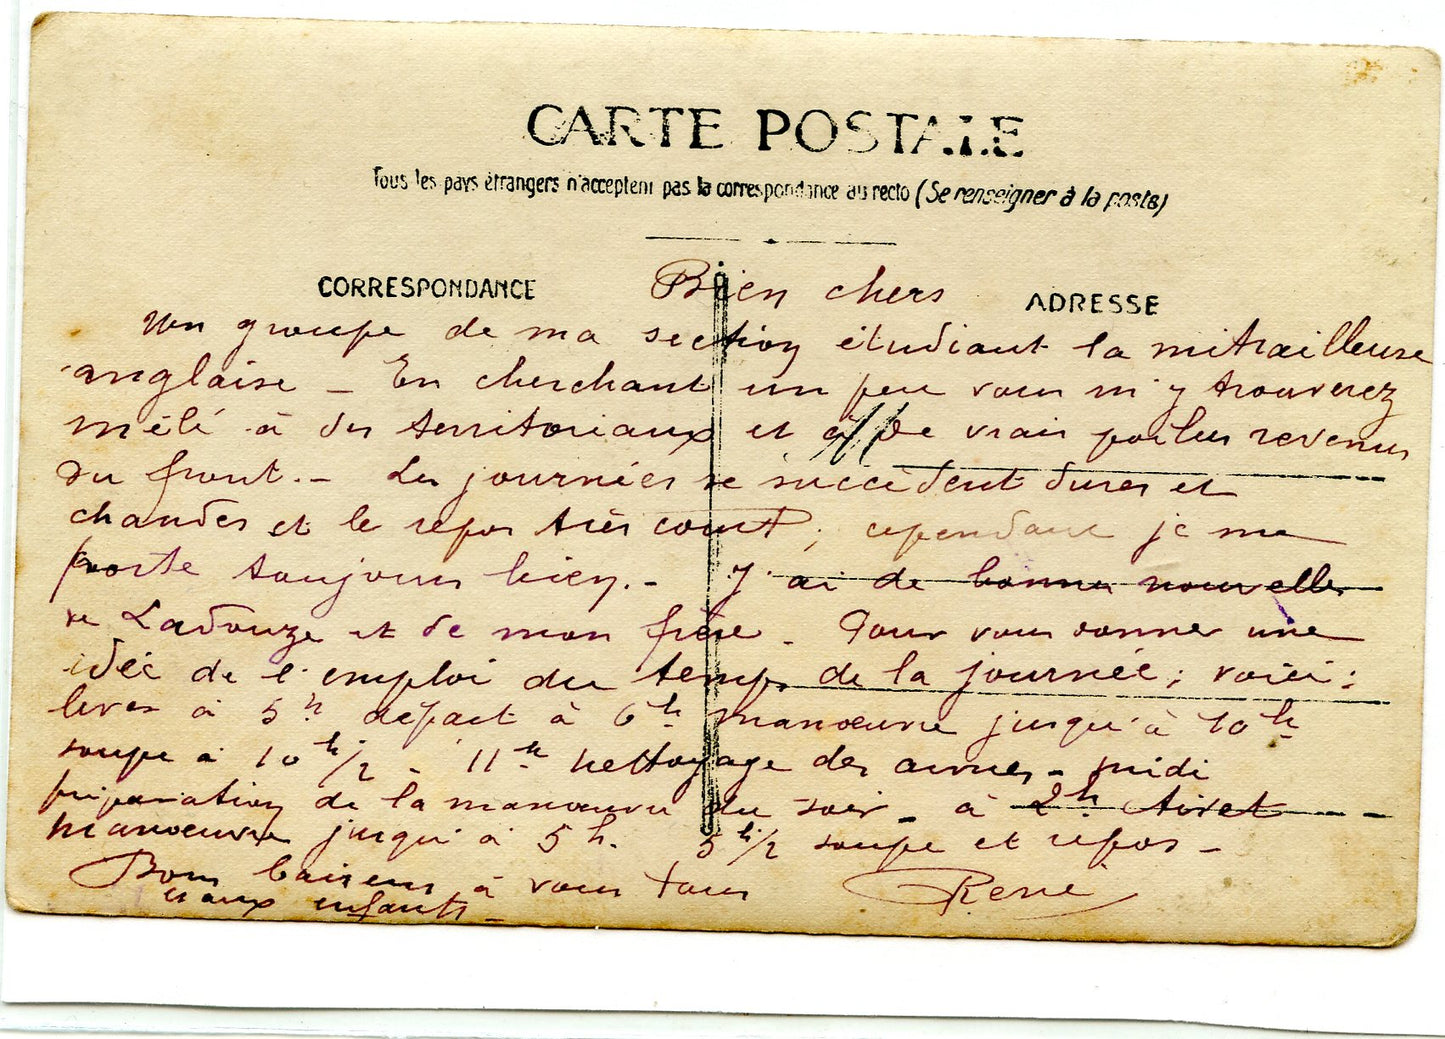 CARTE POSTALE
Tous les pays étrangers n'acceptent pas la correspondance au recto (Se renseigner à la poste)
CORRESPONDANCE
ADRESSE
Bien chers
Un groupe de ma section étudiant la mitrailleuse
anglaise _ En cherchant un peu vous m'y trouverez
mêlé à des territoriaux et à de vrais poilus revenus
du front. - Les journées se succèdent dures et
chaudes et le repos très court ; cependant je me
porte toujours bien. - J'ai de bonnes nouvelles
de Ladouze et de mon frère _ Pour vous donner une
idée de l'emploi du temps de la journée ; voici :
lever à 5h départ à 6h manœuvre jusqu'à 10h
soupe à 10h 1/2 - 11h nettoyage des armes - midi
préparation de la manœuvre du soir _ à 2h tir et
manœuvre jusqu'à 5h. 5h 1/2 soupe et repos -
Bons baisers à vous tous René
et aux enfants -